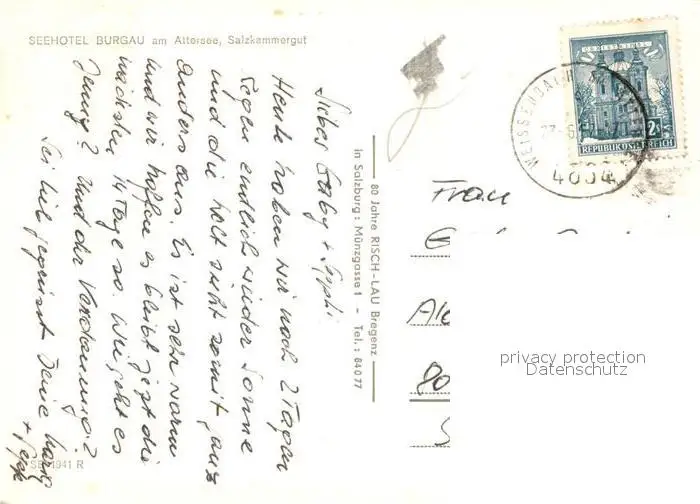 SEEHOTEL BURGAU am Attersee, Salzkammergut
Liebes Gaby + Seppi
Heute haben wir nach 2 Tagen
Regen endlich wieder Sonne
und die Welt sieht somit ganz
anders aus. Es ist sehr warm
und wir hoffen es bleibt jetzt die
nächsten 14 Tage so. Wie geht es
Jenny? Und der Verdauung?
Sei lieb gegrüsst Deine
+
SB 4941 R
80 Jahre RISCH-LAU Bregenz
in Salzburg: Münzgasse 1 - Tel.: 84077
CHRISTKINDL
2S
REPUBLIK ÖSTERREICH
WEISSENBACH
4854
Frau
80
privacy protection
Datenschutz